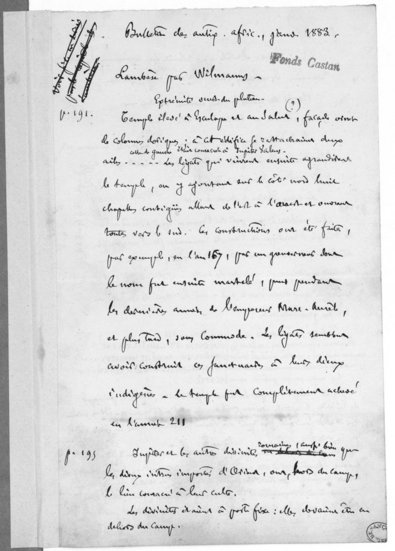 Bulletin des antiq. afric., janv. 1883.
Fonds Castan
Lambèse par Wilmanns -
Extrémité du plateau -
p. 191. Temple élevé à Esculape et au Salut (?), façade
de colonnes doriques : à cet édifice se rattachaient deux
ailes - - - - - Les légats qui vinrent ensuite agrandirent
le temple, en y ajoutant sur le côté nord huit
chapelles contiguës allant de l'est à l'ouest et ouvrant
toutes vers le sud. Ces constructions ont été faites,
par exemple, en l'an 167, par un gouverneur dont
le nom fut ensuite martelé, puis pendant
les dernières années de l'empereur Marc-Aurèle,
et plus tard, sous Commode. Les légats semblent
avoir construit ces sanctuaires à leurs dieux
indigènes - Le temple fut complètement achevé
en l'année 211
p. 195 Jupiter et les autres divinités romaines, aussi bien que
les dieux intrus importés d'Orient, ont, hors du camp,
le lieu consacré à leur culte.
Les divinités étaient à poste fixe : elles devaient être en
dehors du camp.